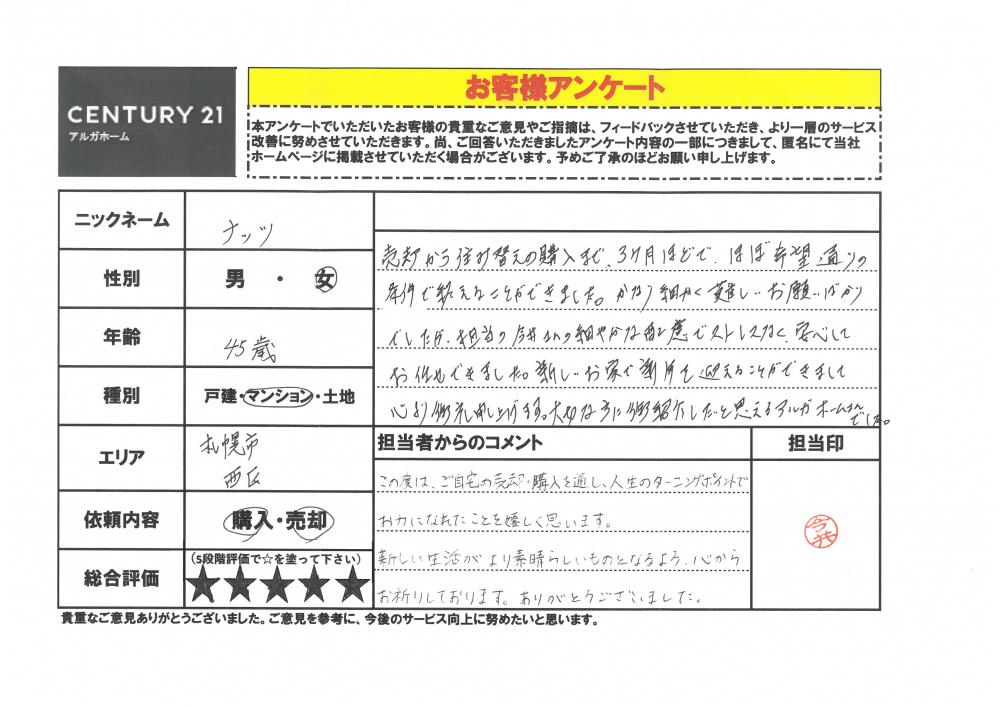 CENTURY 21
アルガホーム
お客様アンケート
本アンケートでいただいたお客様の貴重なご意見やご指摘は、フィードバックさせていただき、より一層のサービス
改善に努めさせていただきます。尚、ご回答いただきましたアンケート内容の一部につきまして、匿名にて当社
ホームページに掲載させていただく場合がございます。予めご了承のほどお願い申し上げます。
ニックネーム
ナッツ
性別
男・女
年齢
45歳
種別
戸建・マンション・土地
エリア
札幌市
西区
依頼内容
購入・売却
総合評価
(5段階評価で☆を塗って下さい)
★★★★★
売却から住み替えの購入まで、3ヶ月ほどで、ほぼ希望通りの
条件で終えることができました。かなり細かく難しいお願いばかり
でしたが、担当の今井さんの細やかな配慮でストレスなく、安心して
お任せできました。新しいお家で新年を迎えることができまして
心より御礼申し上げます。大切な方に御紹介したいと思えるアルガホームさん
でした。
担当者からのコメント
担当印
この度は、ご自宅の売却・購入を通し、人生のターニングポイントで
お力になれたことを嬉しく思います。
新しい生活がより素晴らしいものとなるよう、心から
お祈りしております。ありがとうございました。
今井
貴重なご意見ありがとうございました。ご意見を参考に、今後のサービス向上に努めたいと思います。